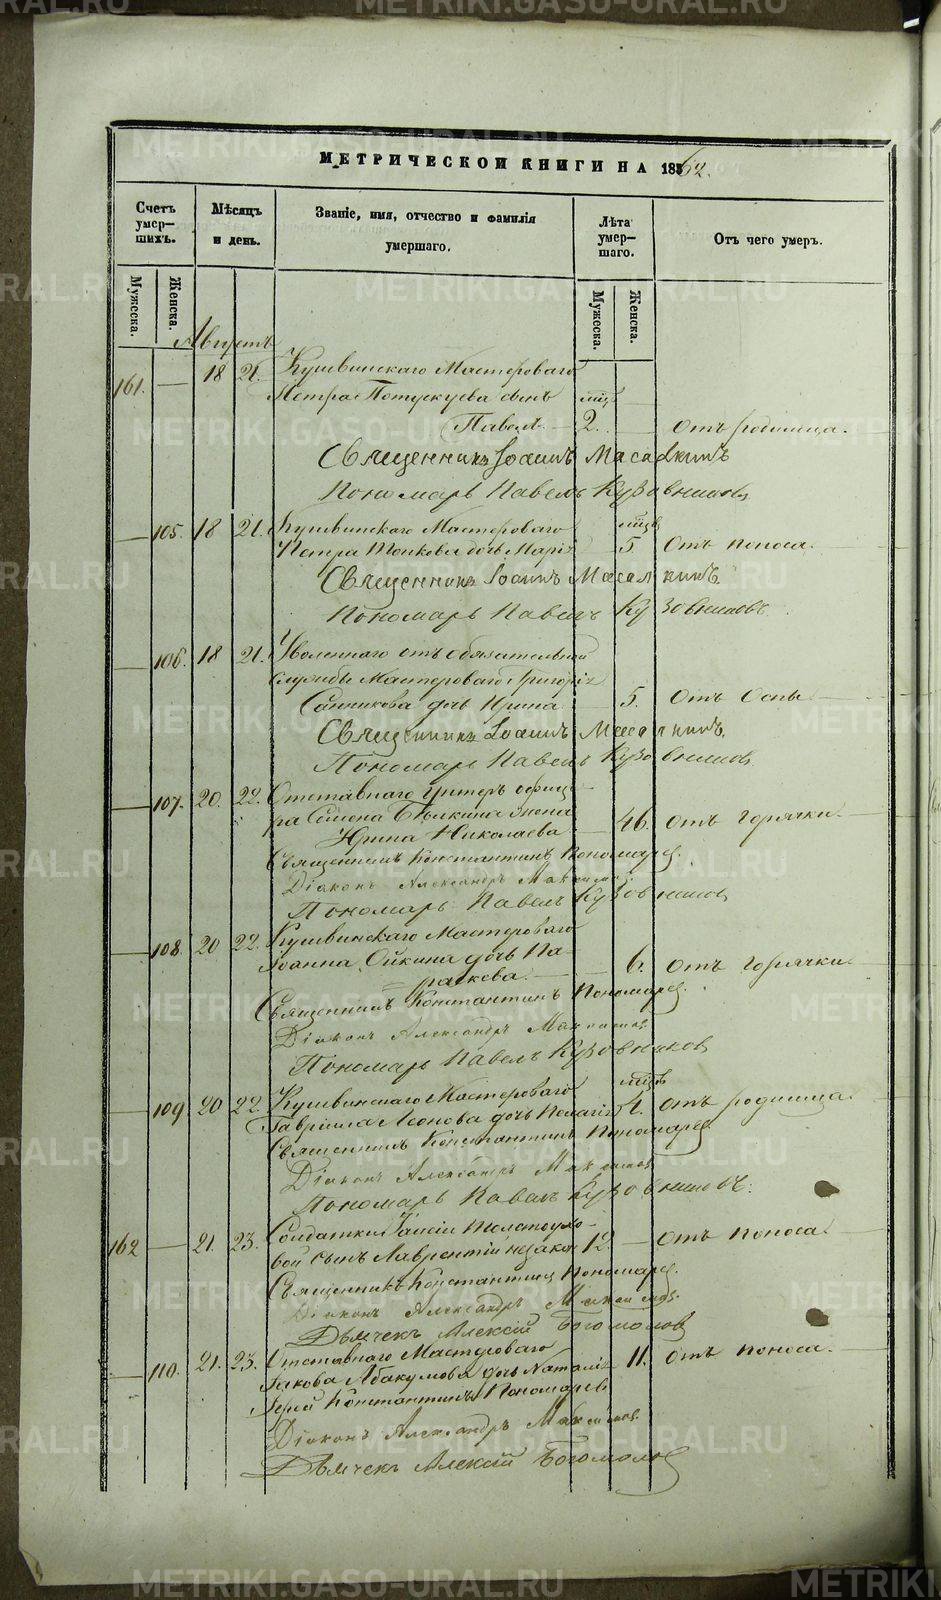 МЕТРИЧЕСКОЙ КНИГИ НА 1862.
Счетъ умер—шихъ.
Мѣсяцъ и день.
Званіе, имя, отчество и фамилія умершаго.
Лѣта умер—шаго.
Отъ чего умеръ.
Мужеска. Женска. Мужеска. Женска.
Августъ
161. — 18 21. Кушвинскаго Мастероваго
Петра сынъ мцъ
Павелъ — 2. — отъ родимца.
Священникъ Іоаннъ Масалкинъ
Пономарь Павелъ Кузовниковъ
— 105. 18 21. Кушвинскаго Мастероваго мцъ
Петра Попкова дочь Марія — 5 отъ поноса.
Священникъ Іоаннъ Масалкинъ
Пономарь Павелъ Кузовниковъ
— 106. 18 21. Уволеннаго отъ обязательной
службы Мастероваго Григорія
Санникова дочь Ирина — 5. отъ Оспы
Священникъ Іоаннъ Масалкинъ
Пономарь Павелъ Кузовниковъ
— 107. 20. 22. Отставнаго Унтеръ офице-
ра Семена жена
Ирина Николаева — 46. отъ горячки.
Священникъ Константинъ Пономаревъ.
Діаконъ Александръ Максимовъ
Пономарь Павелъ Кузовниковъ
— 108. 20 22. Кушвинскаго Мастероваго
Іоанна дочь Па-
раскева. — 6. отъ горячки
Священникъ Константинъ Пономаревъ.
Діаконъ Александръ Максимовъ
Пономарь Павелъ Кузовниковъ
— 109 20 22. Кушвинскаго Мастероваго мцъ
Гавриила Леонова дочь Пелагія 4. отъ родимца.
Священникъ Константинъ Пономаревъ
Діаконъ Александръ Максимовъ
Пономарь Павелъ Кузовниковъ.
162 — 21. 23. Солдатки
сынъ Лаврентій незак. 12. — отъ поноса.
Священникъ Константинъ Пономаревъ.
Діаконъ Александръ Максимовъ
Дьячекъ Алексій Богомоловъ
— 110. 21. 23. Отставнаго Мастероваго
Іакова Абакумова дочь Наталія — 11. отъ поноса.
Іерей Константинъ Пономаревъ
Діаконъ Александръ Максимовъ
Дьячекъ Алексій Богомоловъ
METRIKI.GASO-URAL.RU